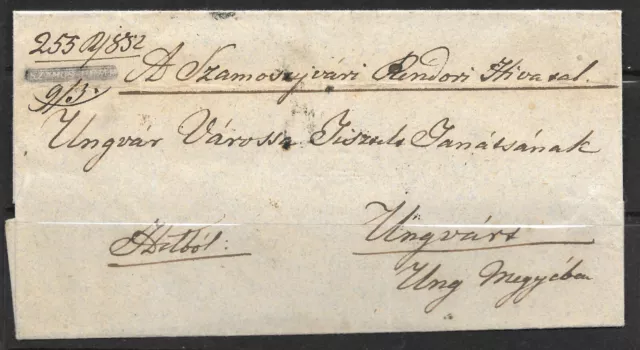 255 R/852
SZAMOSUJVÁR
9/3.
A Szamosujvári Rendőri Hivatal.
Ungvár Várossa Tisztelt Tanátsának
Hivatalból:
Ungvárt
Ung Megyében